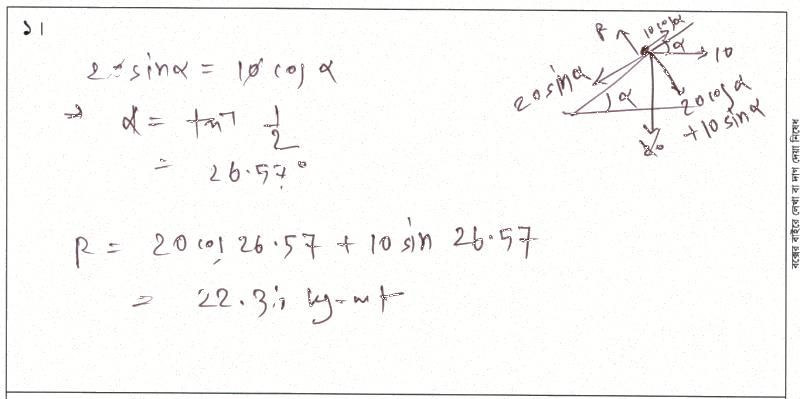 ১।
20 sinα = 10 cos α
⇒ α = tan⁻¹ 1/2
= 26.57°
R = 20 cos 26.57 + 10 sin 26.57
= 22.36 kg-wt
R
10 cosα
α
10
20 sinα
α
20 cosα
+ 10 sinα
20
বক্সের বাইরে লেখা বা দাগ দেয়া নিষেধ